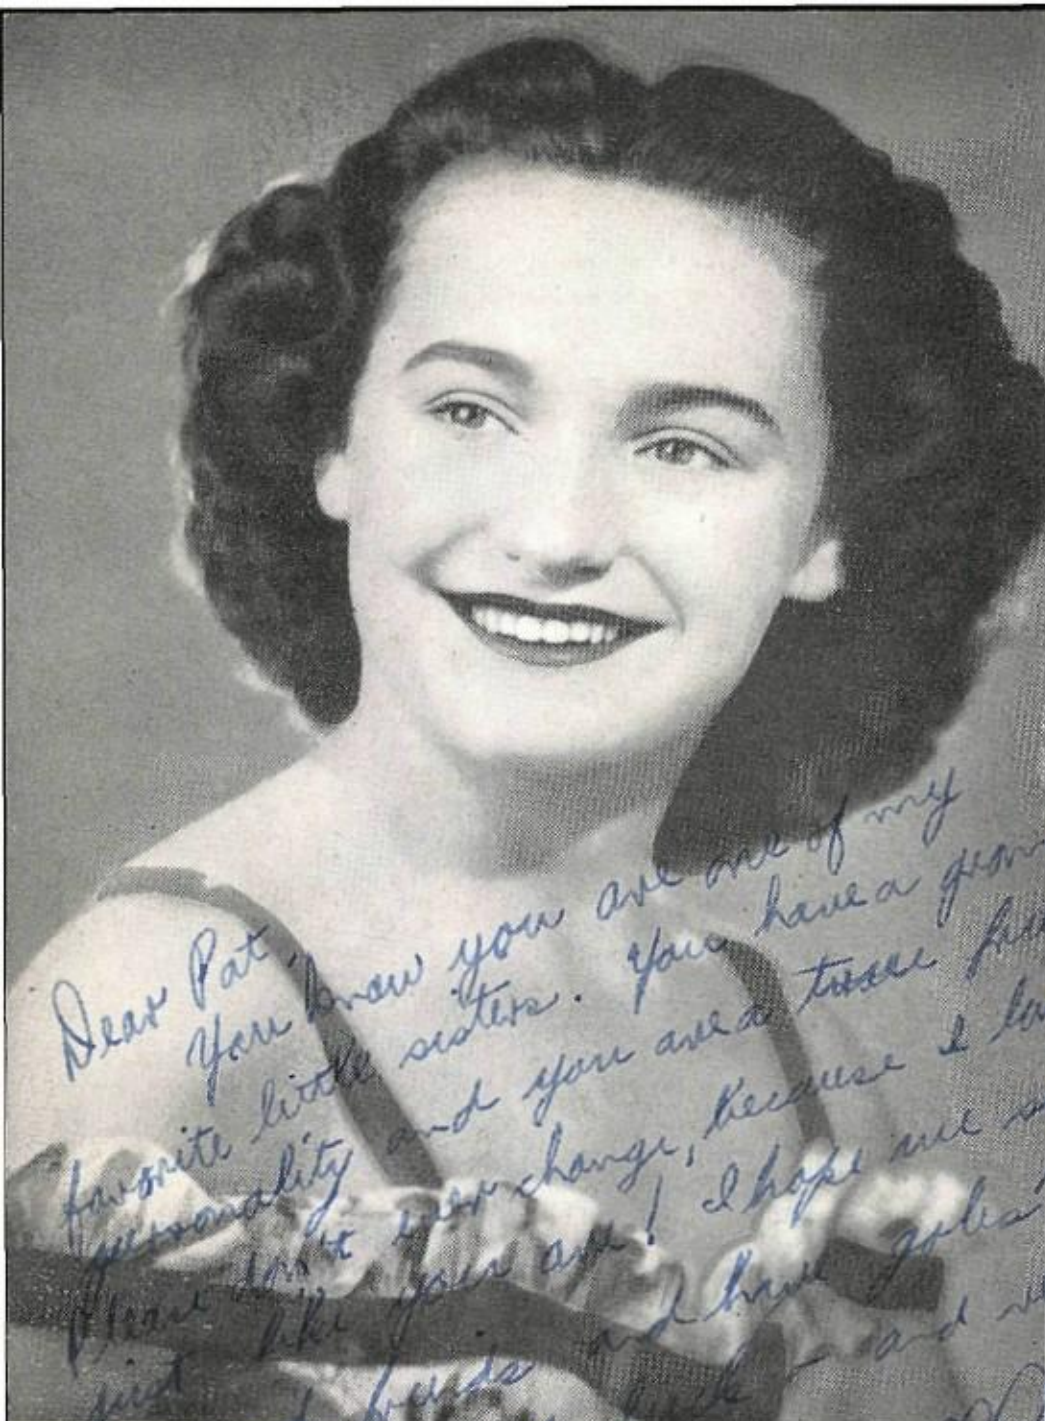 Dear Pat,
You know you are one of my
favorite little sisters. You have a gran
personality and you are a true
Please don't ever change, because I lo
just like you are! I hope we
friends and have gobs
luck - and